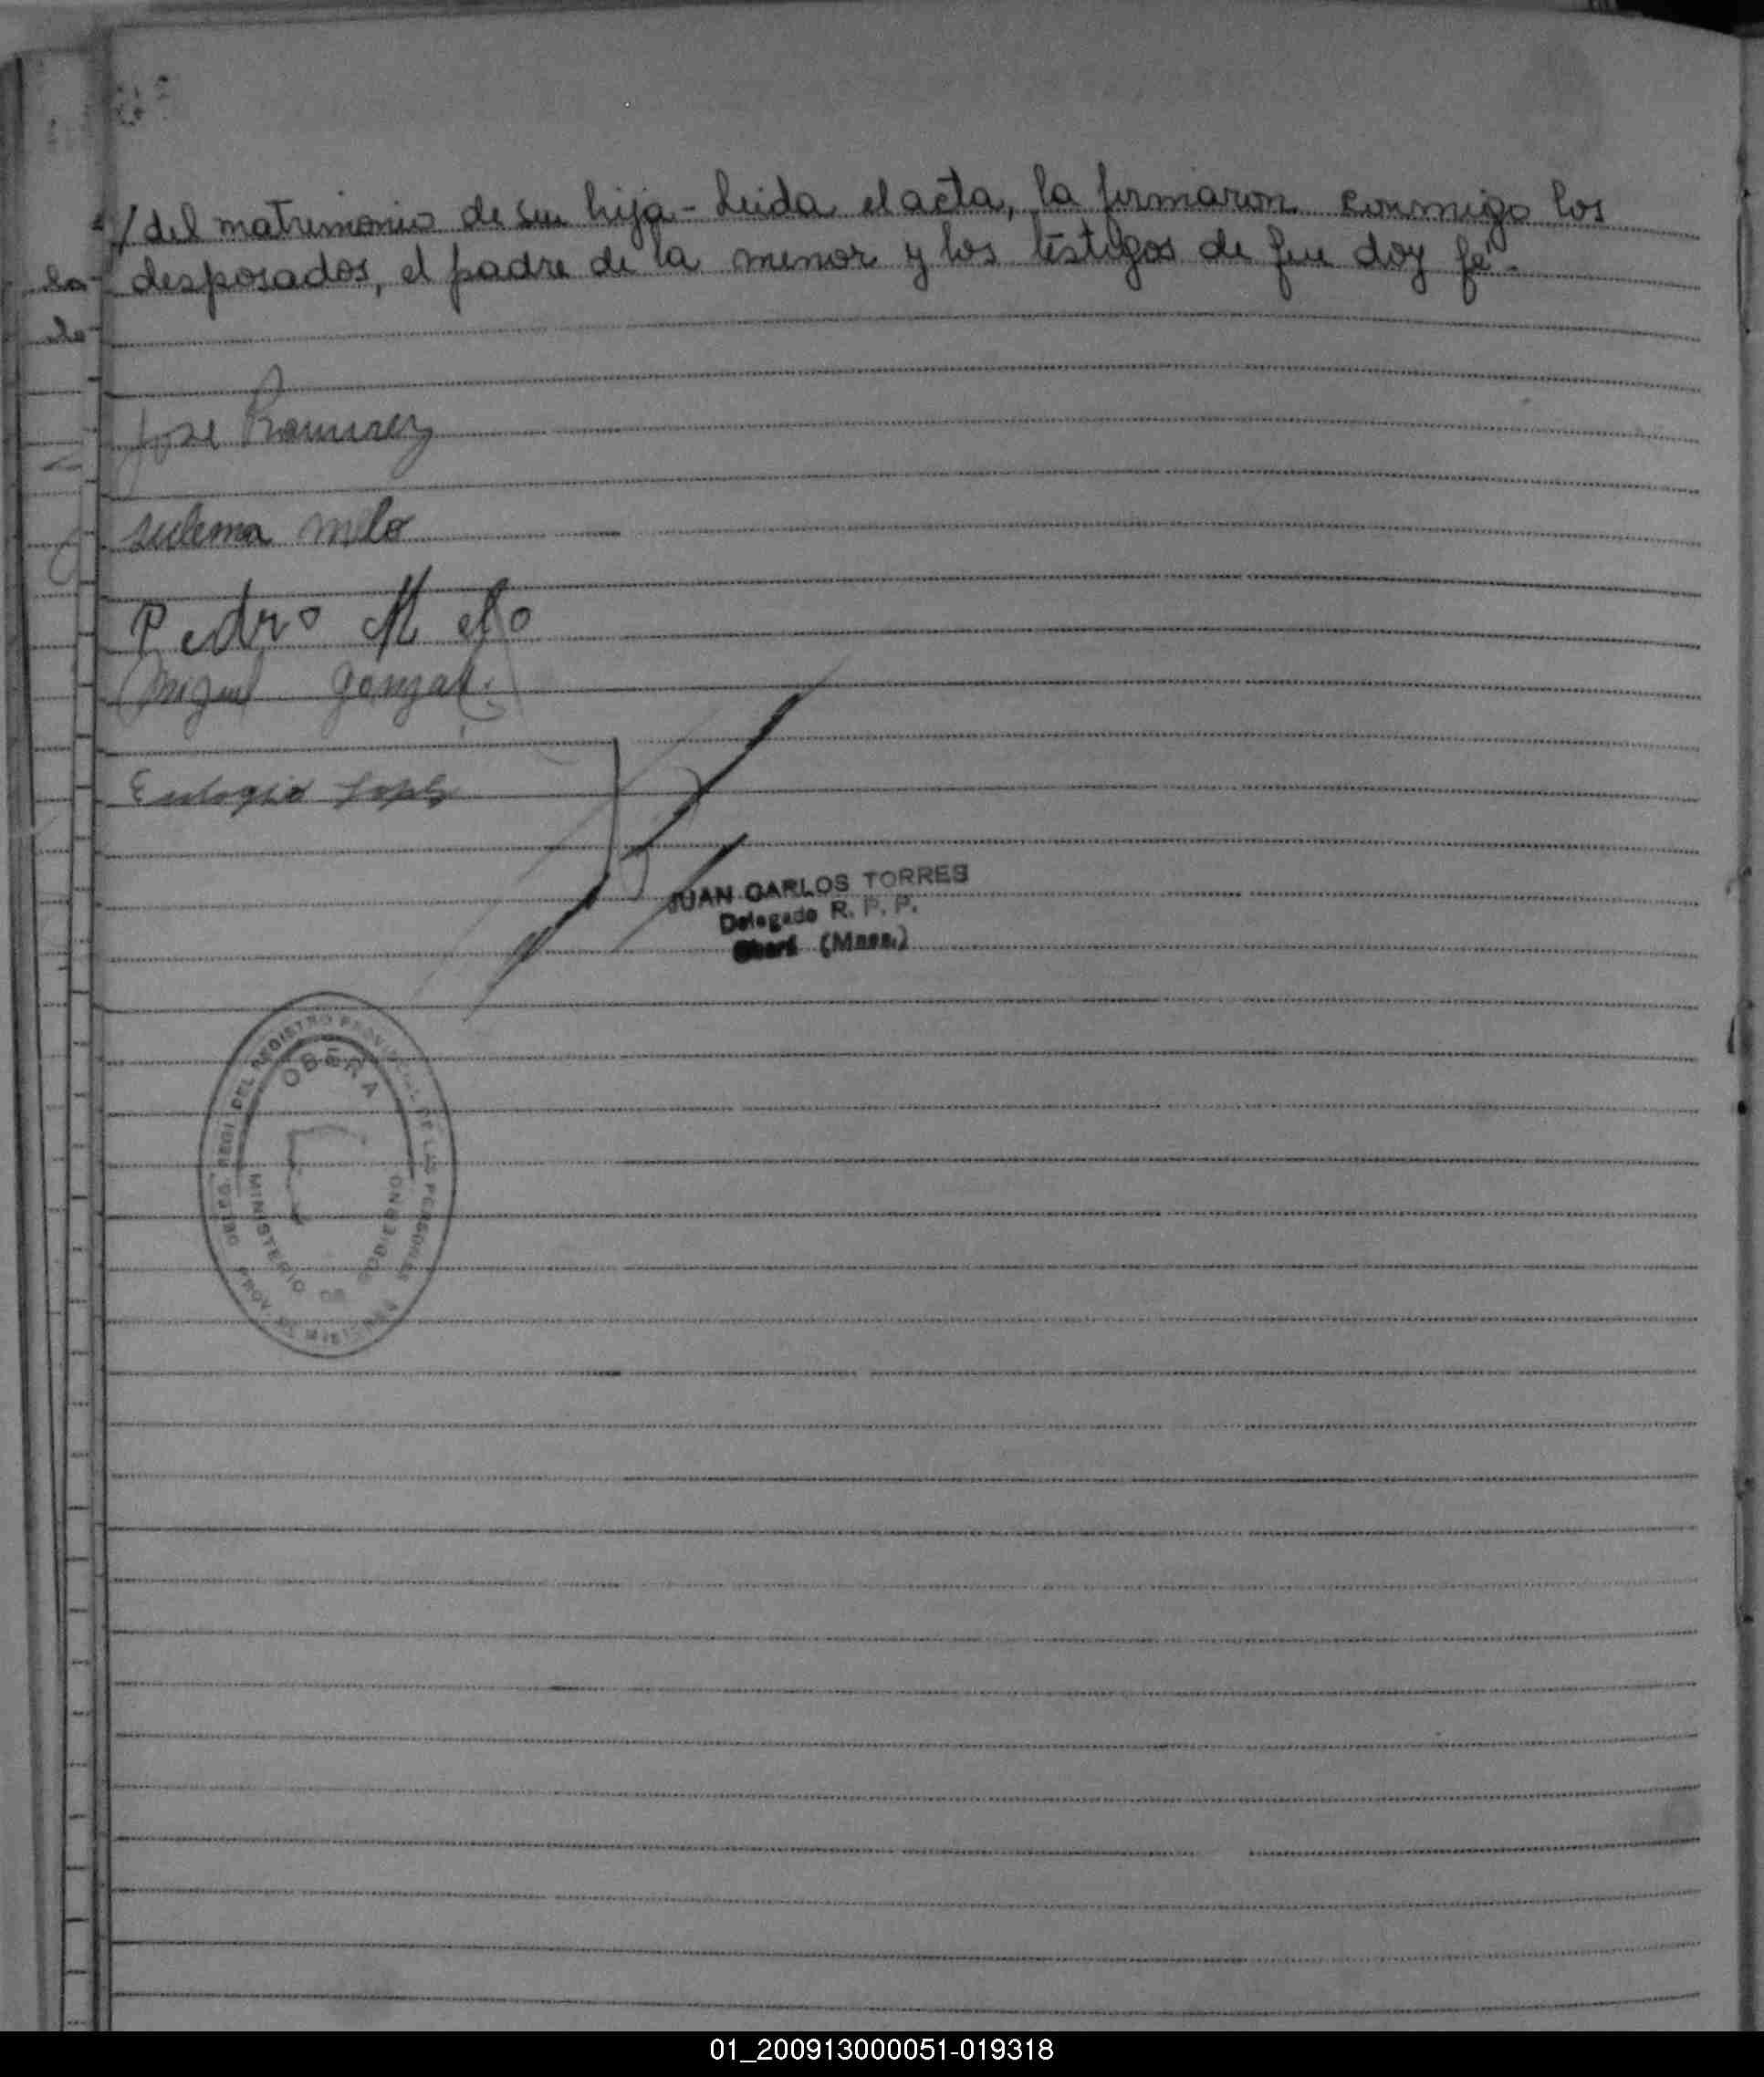 //del matrimonio de su hija - Leida el acta, la firmaron conmigo los
desposados, el padre de la menor y los testigos de que doy fé -
Jose Ramirez
sulema melo
Pedro Melo
Miguel Gonzal
Eulogio Lopez
JUAN CARLOS TORRES
Delegado R. P. P.
Oberá (Mnes.)
DEL REGISTRO PROVINCIAL DE LAS PERSONAS
OBERA
MINISTERIO DE GOBIERNO
PROV. DE MISIONES
01_200913000051-019318